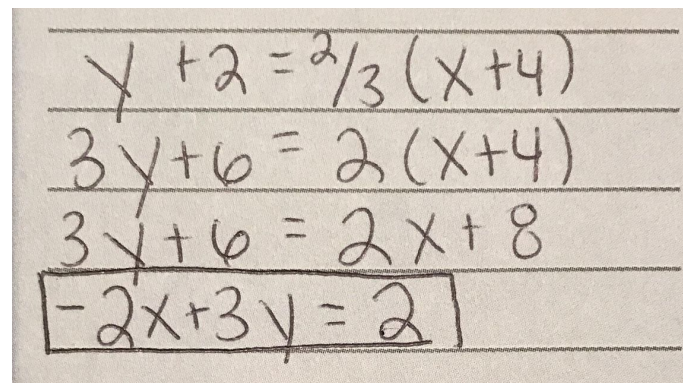 y + 2 = 2/3 (x+4)
3y+6 = 2 (x+4)
3y+6 = 2x + 8
-2x+3y = 2